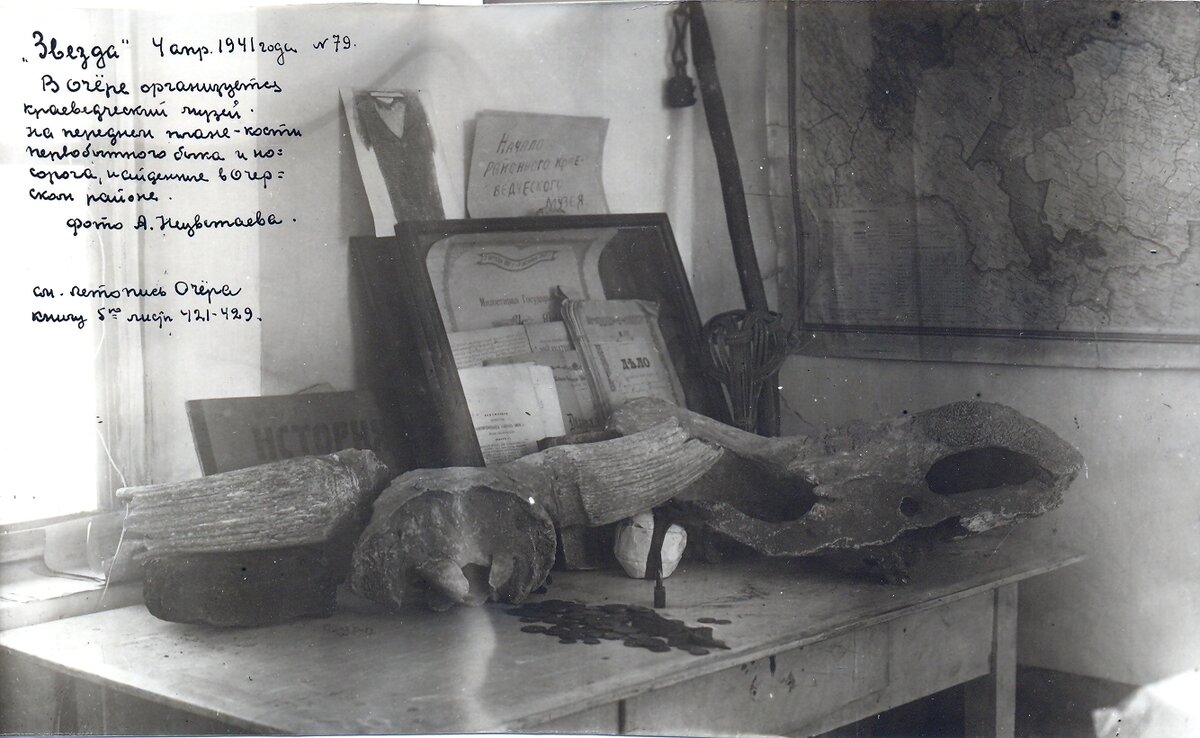 „Звезда" 4 апр. 1941 года № 79.
В Очёре организуется
краеведческий музей.
на переднем плане - кости
первобытного быка и но=
сорога, найденные в Очер=
ском районе.
фото А. Неуветаева.
см. летопись Очёра
книгу 5ую лист 421-429.
Начало
районного крае-
ведческого
музея.
ДѢЛО
ИСТОРИЯ